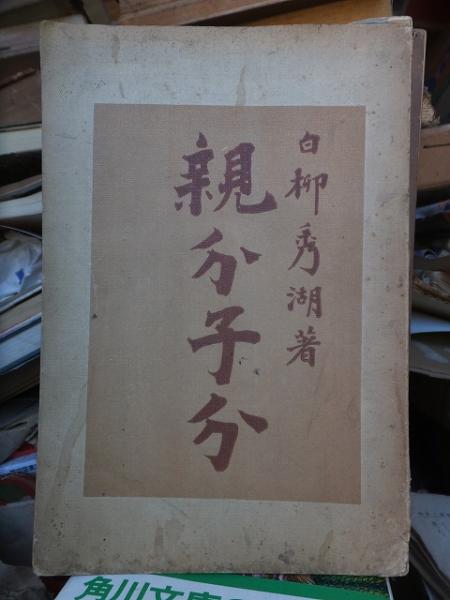 白柳秀湖著
親分子分
角川文庫